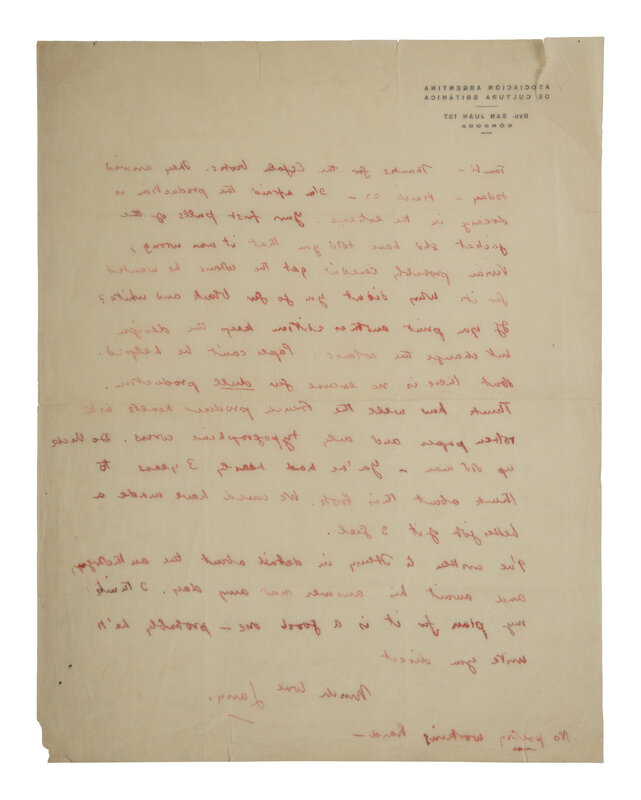 ASOCIACIÓN ARGENTINA
DE CULTURA BRITÁNICA
Bvd. SAN JUAN 137
CORDOBA
Tambi – Thanks for the Cefalu books. They arrived
today – March 22 – I'm afraid the production is
dreary in the extreme. Your first pulls of the
jacket shd have told you that it was wrong;
probably couldn't get the colours he wanted
for it. Why didnt you go for black and white?
If you print another edition keep the design
but change the colours. Paper can't be helped.
But there is no excuse for dull production.
Think how well the French produce novels with
rotten paper and only typographical covers. Do buck
up old man – You've had nearly 3 years to
think about this book. We could have made a
better job of it I feel.
I've written to Henry in detail about the anthology;
and await his answer now any day. I think
my plan for it is a good one – probably he'll
write you direct
Much love Larry.
No poetry working hard –